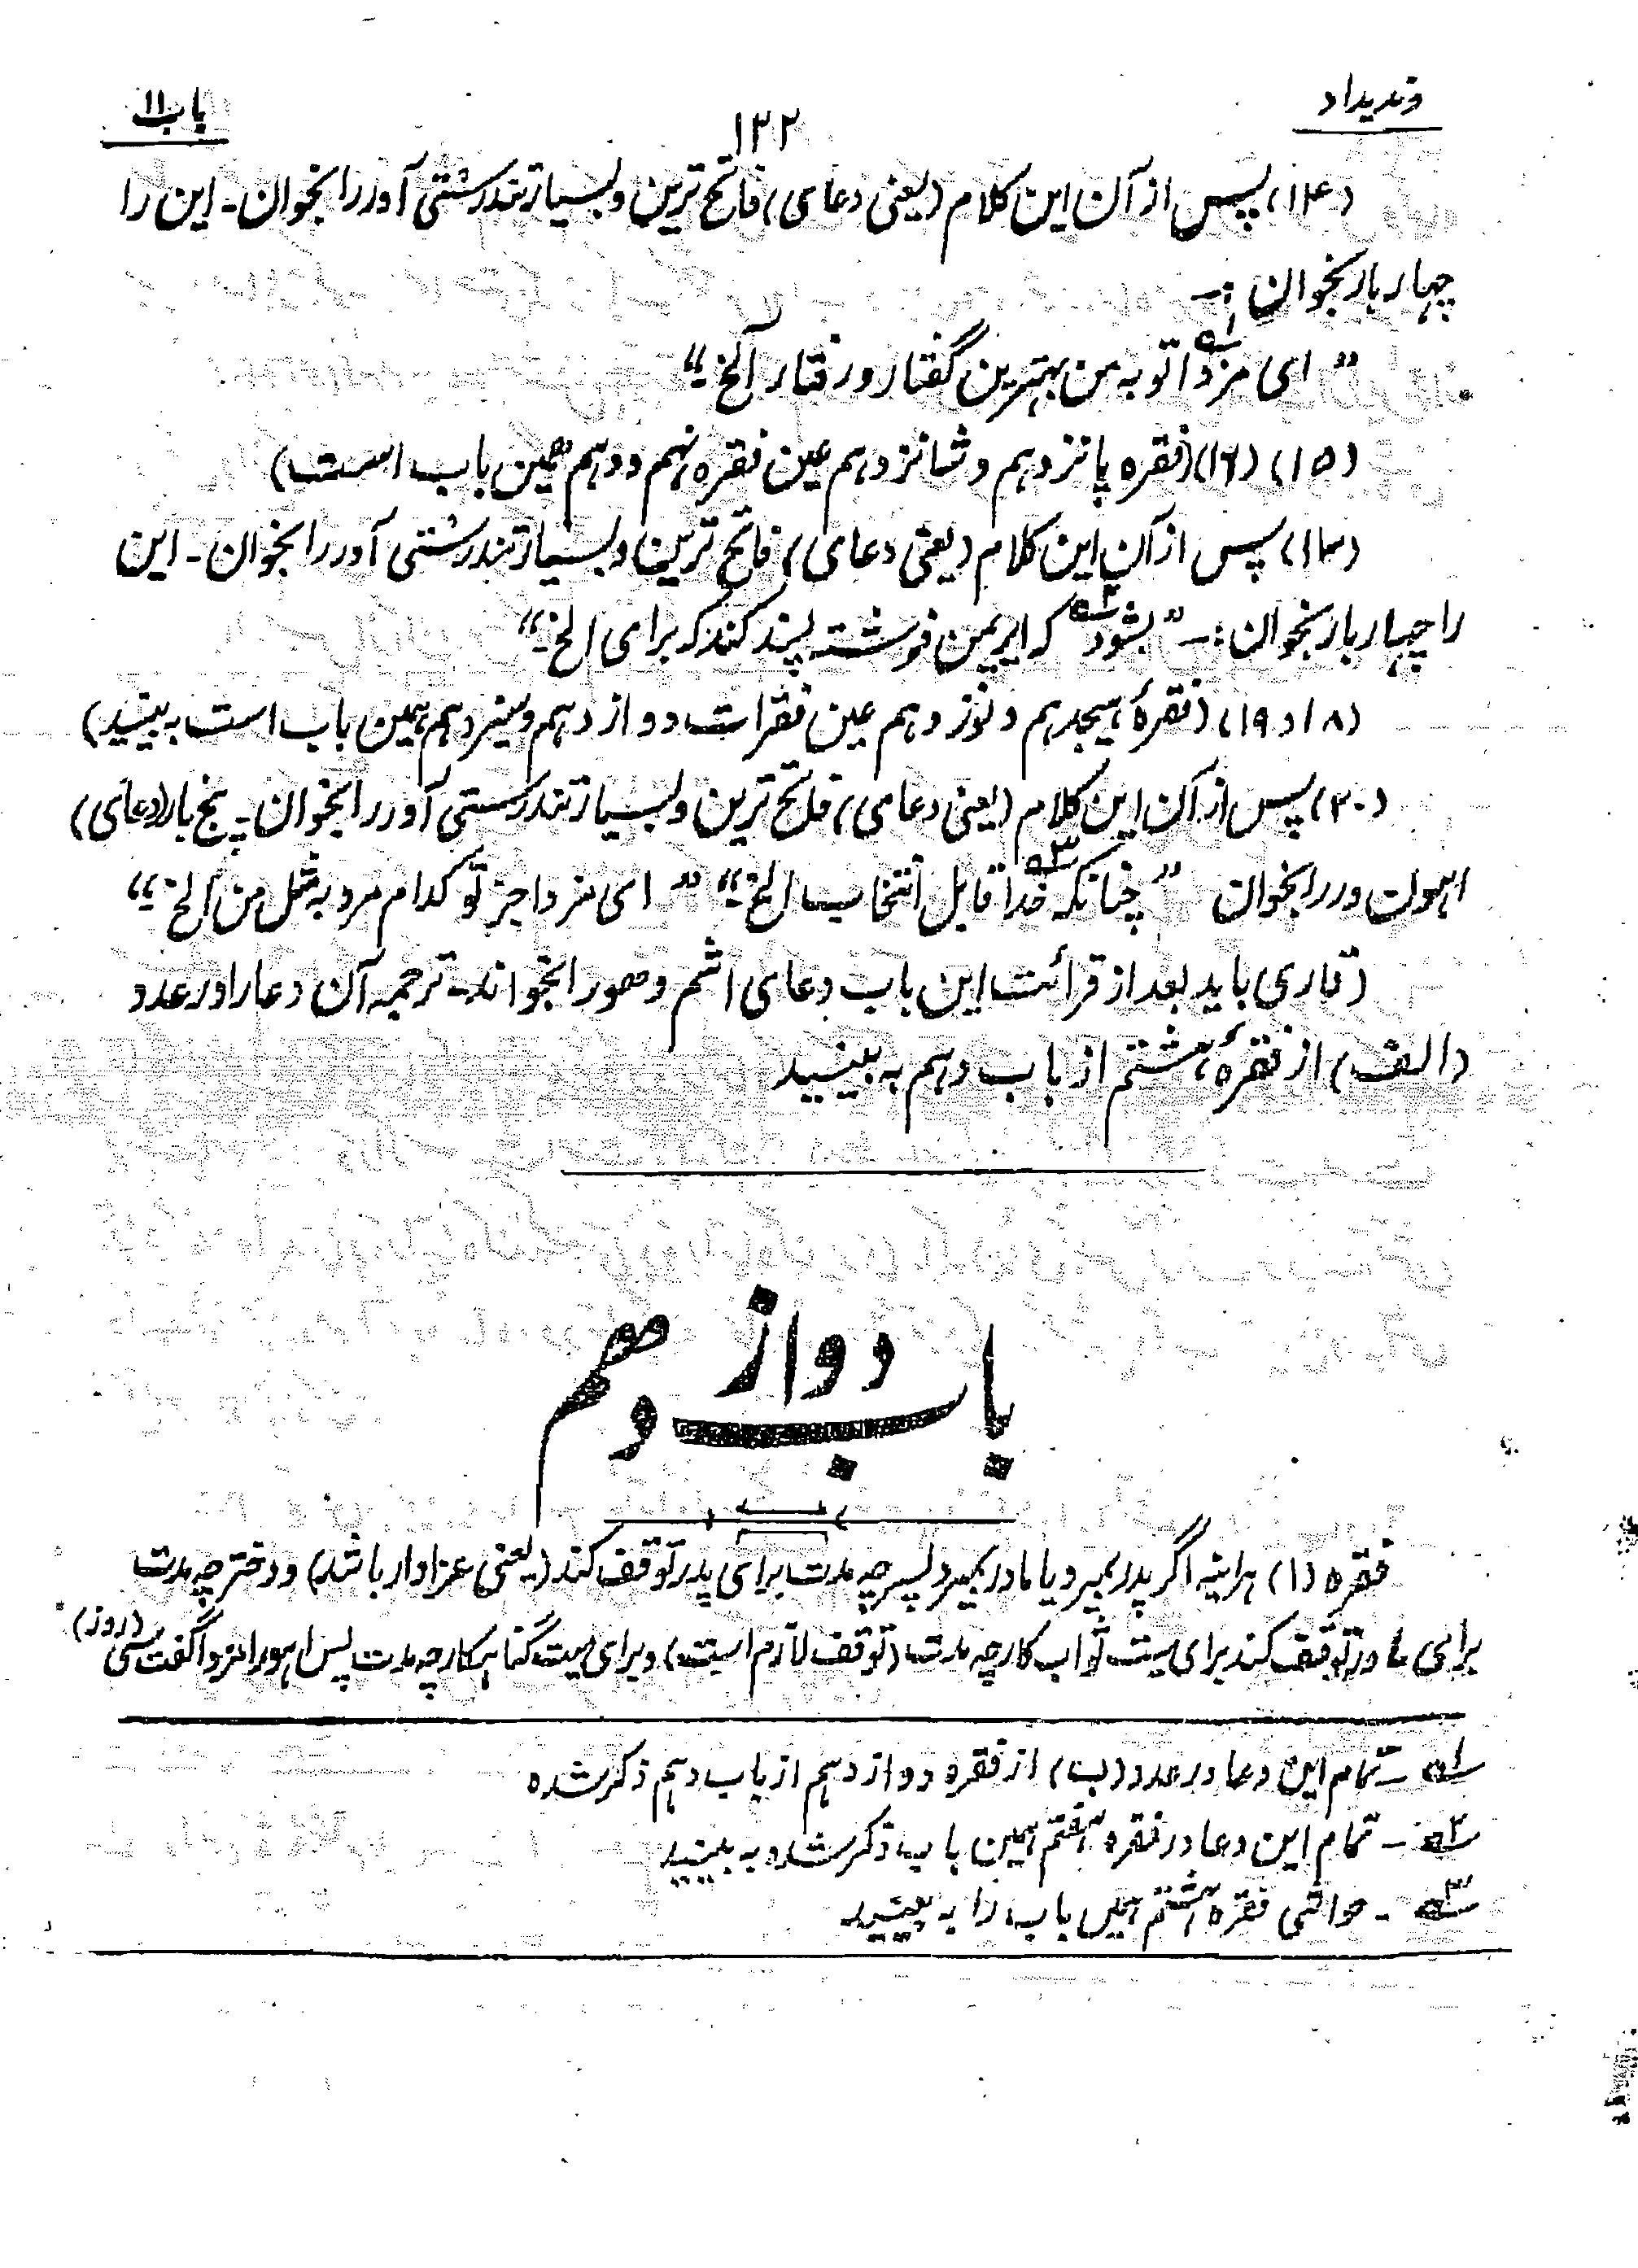 وندیداد
۱۳۲
باب ۱۱
(۱۴) پس از آن این کلام (یعنی دعای) فاتح ترین و بسیار تندرستی آور را بخوان - این را
چهار بار بخوان :-
" ای مزدا ۱ تو به من بهترین گفتار و رفتار الخ "
(۱۵) (۱۶) (فقره پانزدهم و شانزدهم عین فقره نهم و دهم همین باب است)
(۱۷) پس از آن این کلام (یعنی دعای) فاتح ترین و بسیار تندرستی آور را بخوان - این
را چهار بار بخوان :- " بشود ۲ که ایریمن فرشته پسند کند که برای الخ "
(۱۸ و ۱۹) (فقرهٔ هیجدهم و نوزدهم عین فقرات دوازدهم و سیزدهم همین باب است به بینید)
(۲۰) پس از آن این کلام (یعنی دعای) فاتح ترین و بسیار تندرستی آور را بخوان - پنج بار (دعای)
اهونور را بخوان " چنانکه خدا ۳ قابل انتخاب الخ " " ای مزدا جز تو کدام مرد به مثل من الخ "
(قاری باید بعد از قرائت این باب دعای اشم وهو را بخواند - ترجمه آن دعا را در عدد
(الف) از فقرهٔ هشتم از باب دهم به بینید
باب دوازدهم
فقره (۱) هرآینه اگر پدر بمیرد یا مادر بمیرد پسر چه مدت برای پدر توقف کند (یعنی عزادار باشد) و دختر چه مدت
برای مادر توقف کند برای میت ثواب کار چه مدت (توقف لازم است) و برای میت گناهکار چه مدت پس اهورامزدا گفت سی (روز)
۱ - تمام این دعا در عدد (ب) از فقره دوازدهم از باب دهم ذکر شده
۲ - تمام این دعا در فقره هفتم همین باب ذکر شده به بینید
۳ - حواشی فقره هشتم همین باب را به بینید